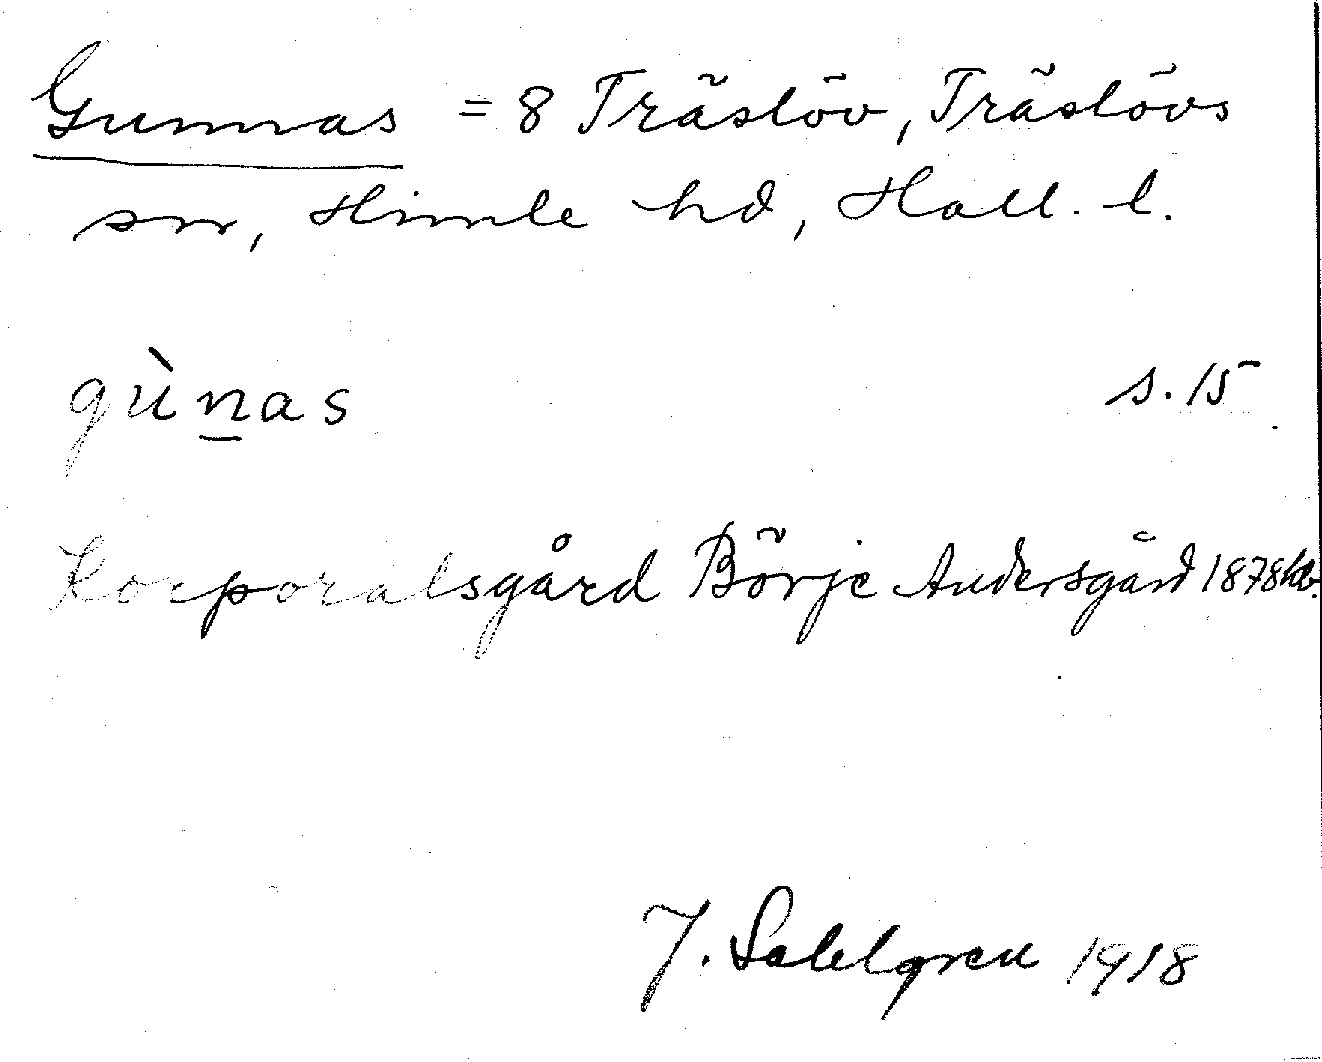 Gunnas = 8 Träslöv, Träslövs
sn, Himle hd, Hall. l.
gùn̲as s. 15
Korporalsgård Börje Andersgård 1878
J. Sahlgren 1918